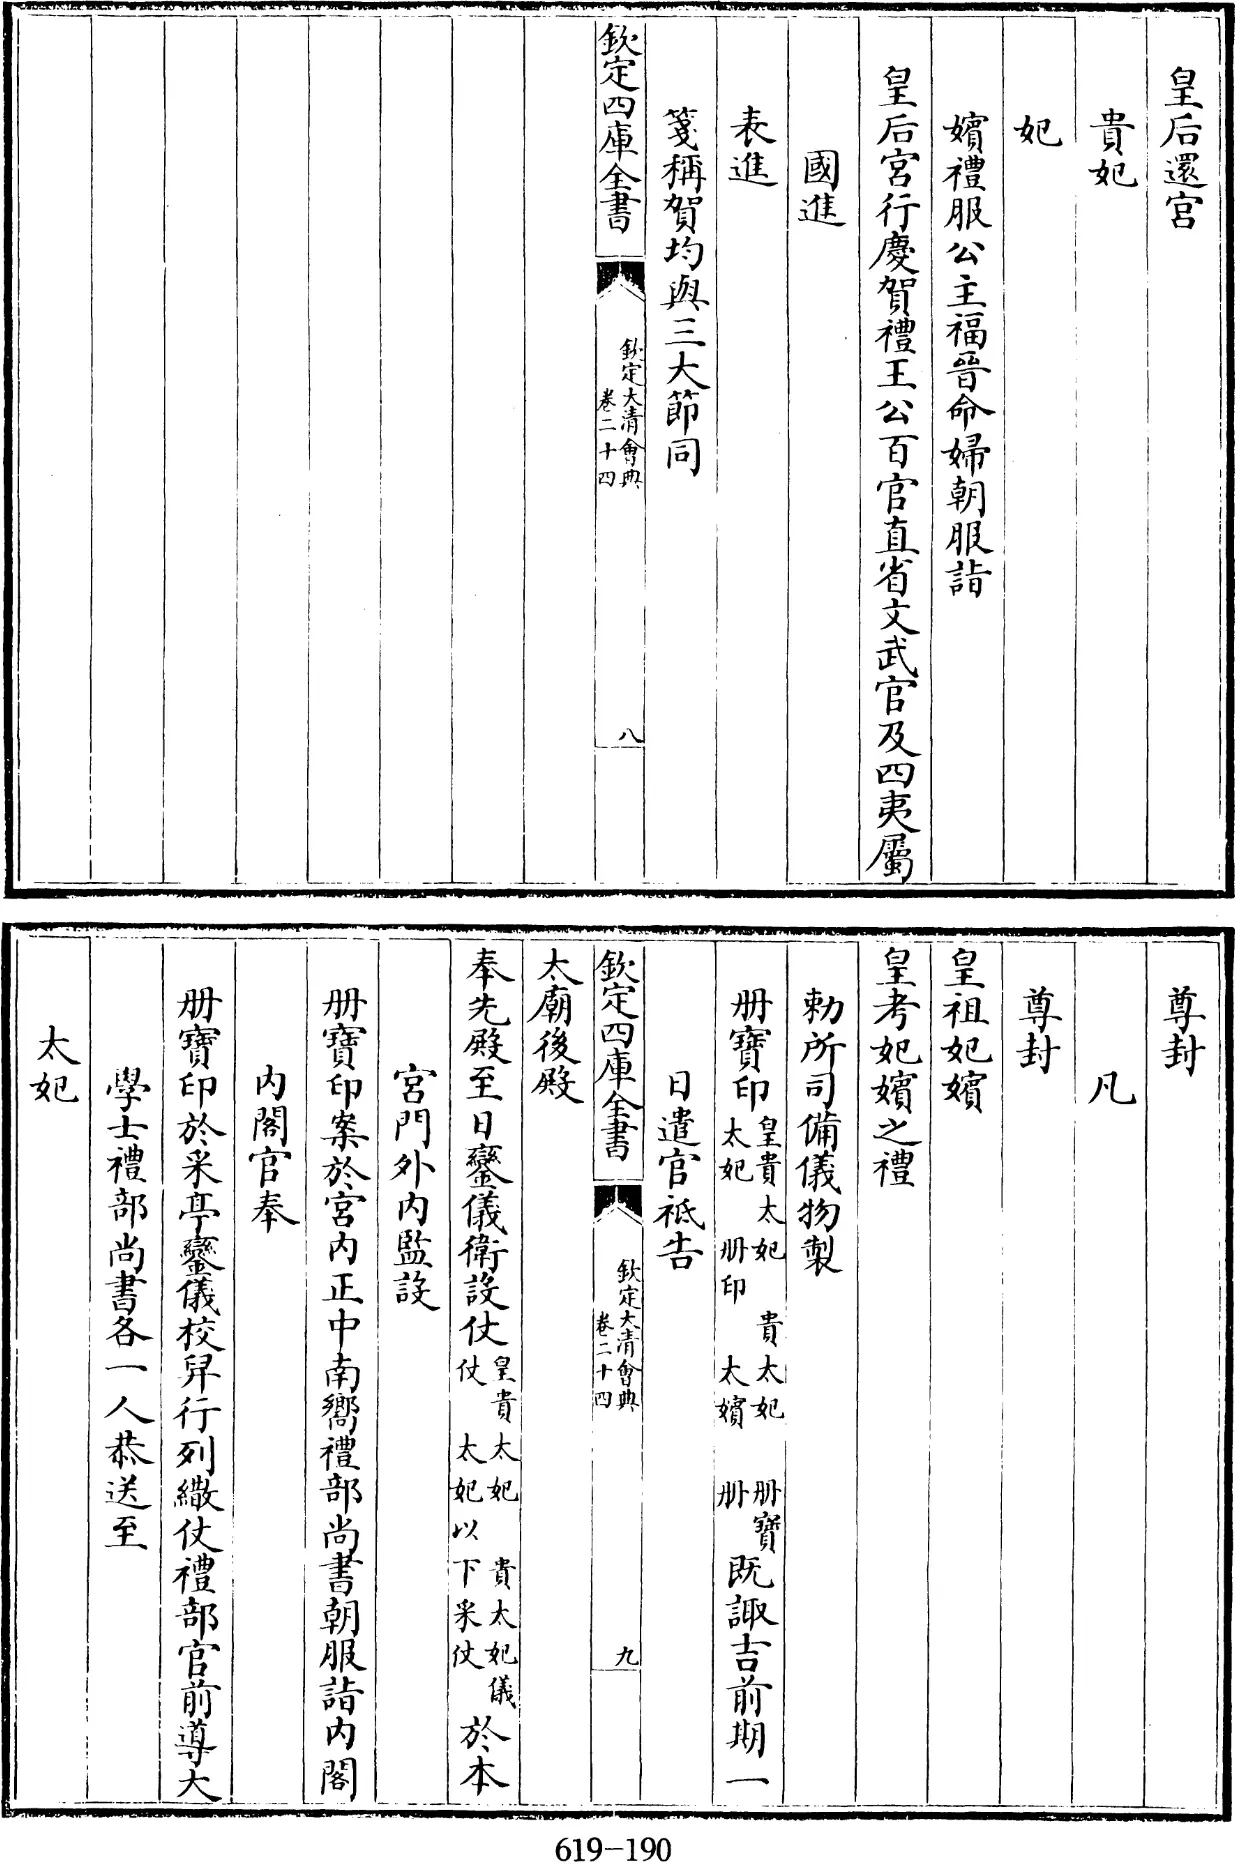 皇后還宮
貴妃
妃
嬪禮服公主福晉命婦朝服詣
皇后宮行慶賀禮王公百官直省文武官及四夷屬
國進
表進
箋稱賀均與三大節同
欽定四庫全書
欽定大清會典
卷二十四
八
尊封
凡
尊封
皇祖妃嬪
皇考妃嬪之禮
勅所司備儀物製
冊寶印皇貴太妃 貴太妃 冊寶太妃 冊印 太嬪 冊既諏吉前期一
日遣官祗告
欽定四庫全書
欽定大清會典
卷二十四
九
太廟後殿
奉先殿至日鑾儀衛設仗皇貴太妃 貴太妃儀仗 太妃以下采仗於本
宮門外内監設
冊寶印案於宮内正中南嚮禮部尚書朝服詣内閣
内閣官奉
冊寶印於采亭鑾儀校舁行列繖仗禮部官前導大
學士禮部尚書各一人恭送至
太妃
619-190